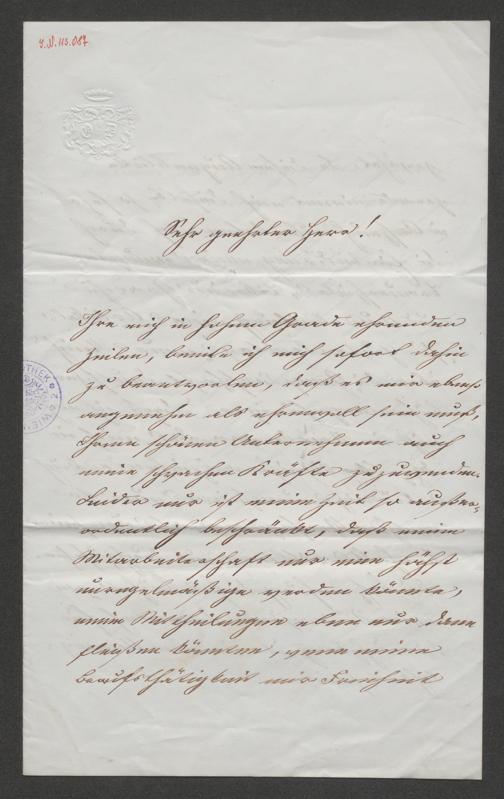 J.N. 113.087
Sehr geehrter Herr!
Ihre mich in hohem Grade ehrenden
Zeilen, beeile ich mich sofort dahin
zu beantworten, daß es mir ebenso
angenehm als ehrenvoll sein muß,
Ihrem schönen Unternehmen auch
meine schwachen Kräfte zuzuwenden.
Leider nur ist meine Zeit so außer-
ordentlich beschränkt, daß meine
Mitarbeiterschaft nur eine höchst
unregelmäßige werden könnte,
meine Mittheilungen eben nur dann
fließen könnten, wenn meine
Berufsthätigkeit mir Freiheit